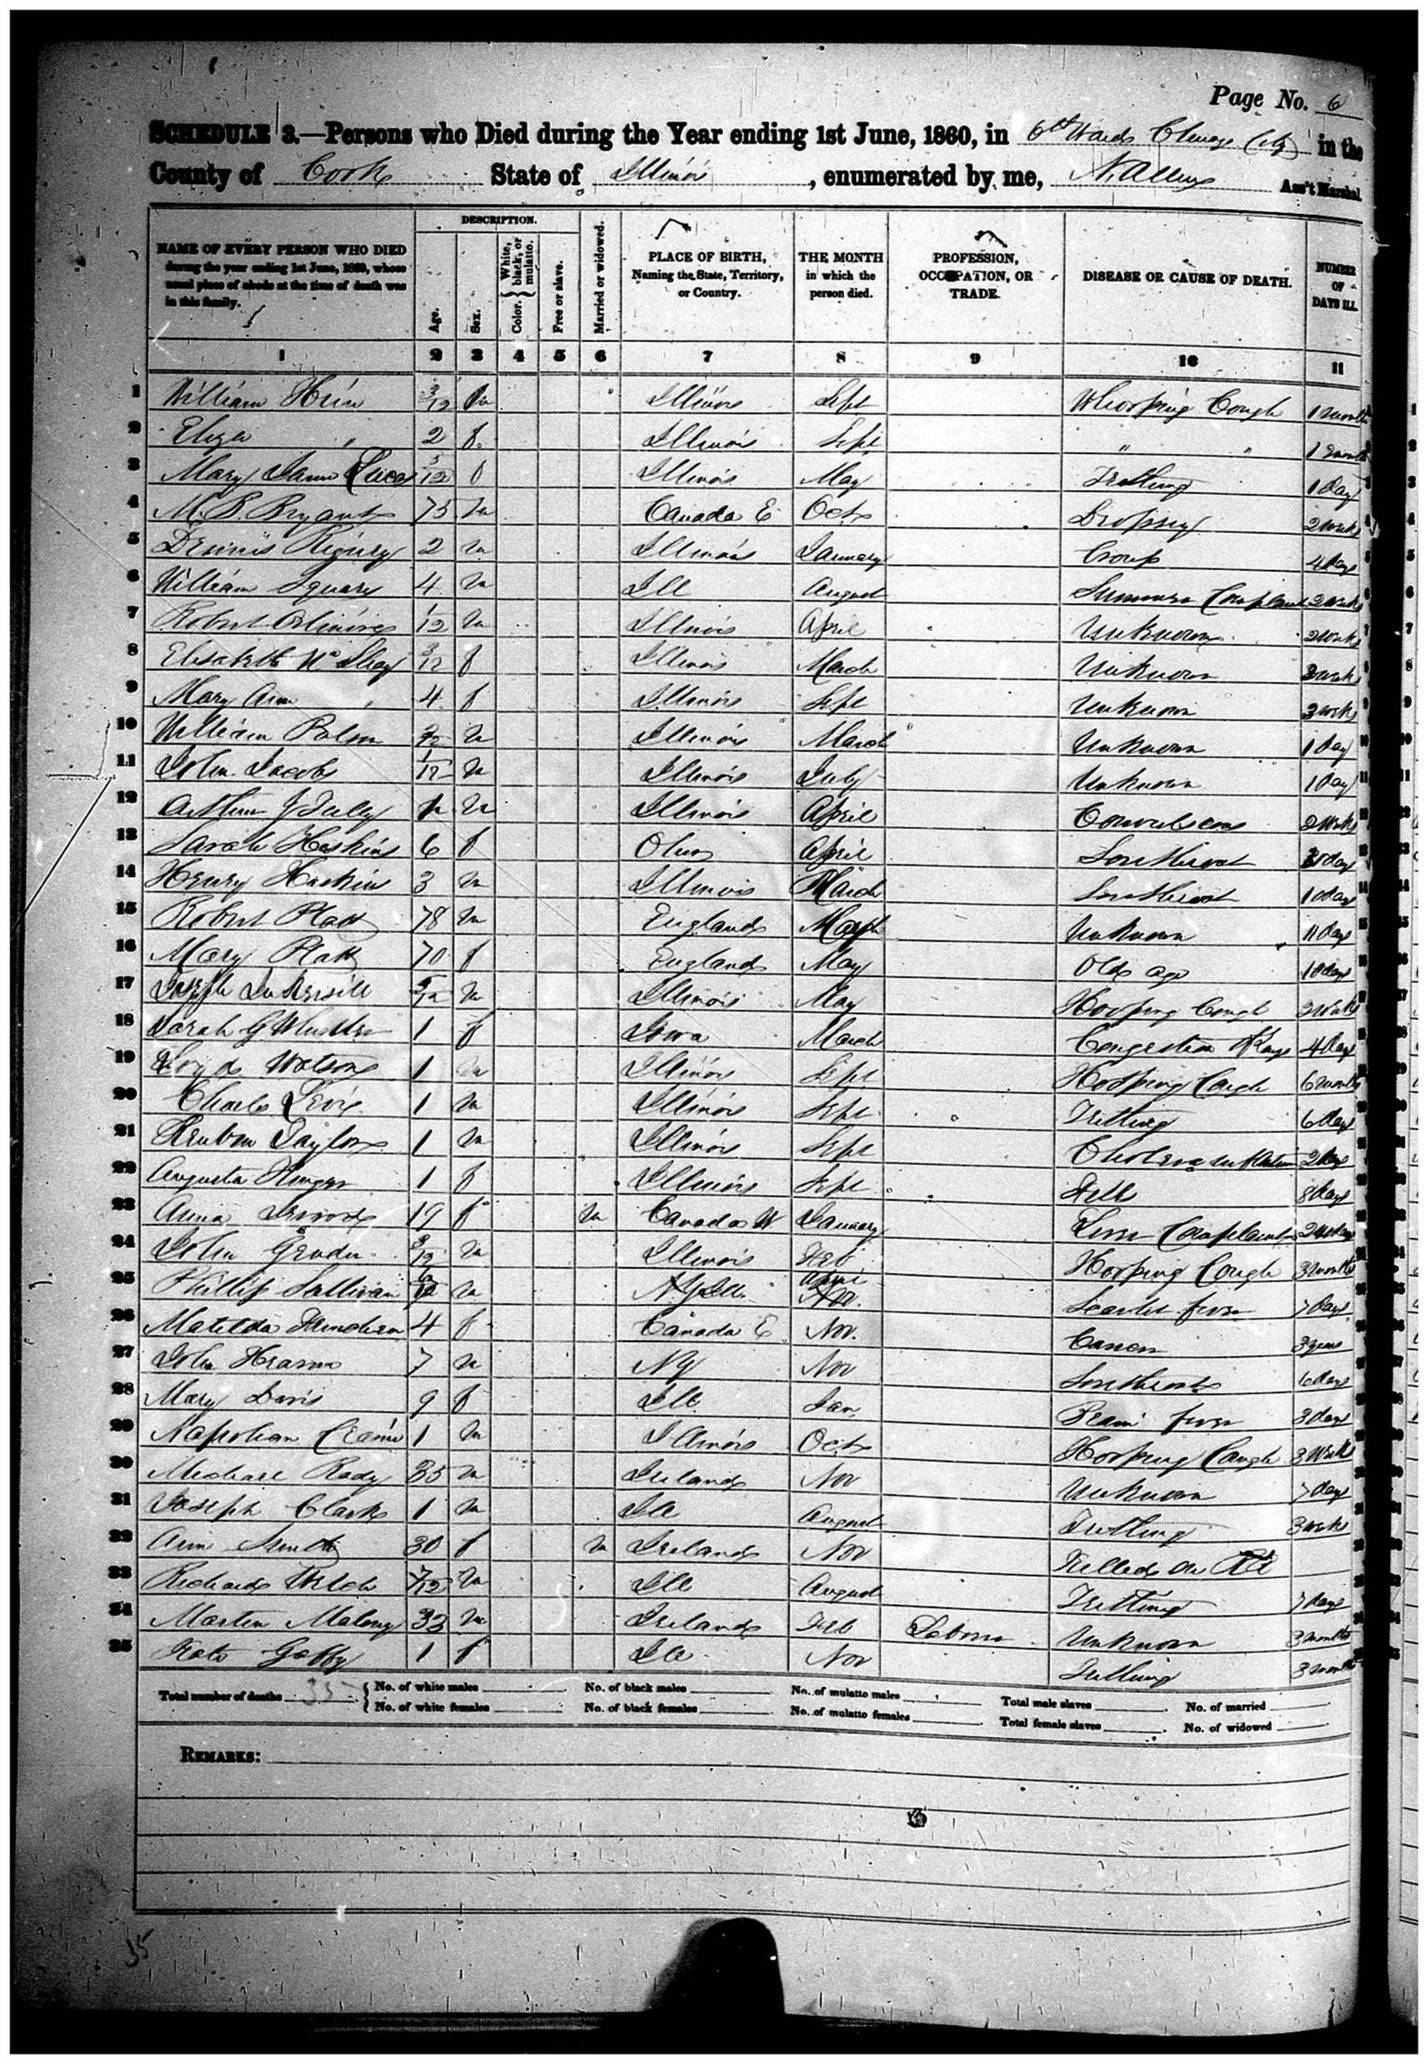 Page No. 6
SCHEDULE 3.—Persons who Died during the Year ending 1st June, 1860, in 6th Ward Chicago City in the
County of Cook State of Illinois, enumerated by me, Ass't Marshal.
DESCRIPTION.
NAME OF EVERY PERSON WHO DIED during the year ending 1st June, 1860, whose usual place of abode at the time of death was in this family.
Age. Sex. Color. { White, black, or mulatto. Free or slave. Married or widowed.
PLACE OF BIRTH, Naming the State, Territory, or Country.
THE MONTH in which the person died.
PROFESSION, OCCUPATION, OR TRADE.
DISEASE OR CAUSE OF DEATH.
NUMBER OF DAYS ILL.
1 2 3 4 5 6 7 8 9 10 11
1 William 3/12 m Illinois Sept Whooping Cough 1 month
2 Eliza " 2 f Illinois Sept " " 1 month
3 Mary Jane Lucas 5/12 f Illinois May Teething 1 day
4 M. Bryant 75 m Canada E Oct Dropsy 2 weeks
5 Dennis 2 m Illinois January Croup 4 days
6 William Squary 4 m Ill August Summer Complaint 2 weeks
7 Robert 1/12 m Illinois April Unknown 2 weeks
8 Elisabeth 3/12 f Illinois March Unknown 3 weeks
9 Mary Ann " 4 f Illinois Sept Unknown 3 wks
10 William m Illinois March Unknown 1 day
11 John Jacobs 1/12 m Illinois July Unknown 1 day
12 Arthur J Tully m Illinois April Convulsions 2 wks
13 Sarah Haskins 6 f Ohio April Sore throat days
14 Henry Haskins 3 m Illinois March Sore throat 10 days
15 Robert Platt 78 m England March Unknown 11 days
16 Mary Platt 70 f England May Old age 10 days
17 Joseph m Illinois May Hooping Cough 3 weeks
18 Sarah G Wheeler 1 f Iowa March Congestion Lungs 4 days
19 Watson 1 m Illinois Sept Hooping Cough 6 months
20 Charles Levis 1 m Illinois Sept Teething 6 days
21 Reuben Taylor 1 m Illinois Sept Cholera Infantum 2 days
22 Augusta 1 f Illinois Sept Fell 8 days
23 Anna 19 f m Canada W January Liver Complaint
24 John 3/12 m Illinois Feb Hooping Cough 3 months
25 Phillip Sullivan m Ill. Scarlet fever 7 days
26 Matilda 4 f Canada E Nov. Cancer 3 years
27 John 7 m NY Nov Sore throat 6 days
28 Mary Davis 9 f Ill Jan fever 3 days
29 Napolean 1 m Illinois Oct Hooping Cough 3 wks
30 Michael Rady 35 m Ireland Nov Unknown 7 days
31 Joseph Clark 1 m Ill August Teething 3 wks
32 Ann Smith 30 f m Ireland Nov Killed on RR
33 Richard Welch 7/12 m Ill August Teething 7 days
34 Martin Malony 33 m Ireland Feb Laborer Unknown 3 months
35 Kate Gaffy 1 f Ill Nov Teething 3 months
Total number of deaths 35 { No. of white males No. of black males No. of mulatto males Total male slaves No. of married
No. of white females No. of black females No. of mulatto females Total female slaves No. of widowed
REMARKS:
35